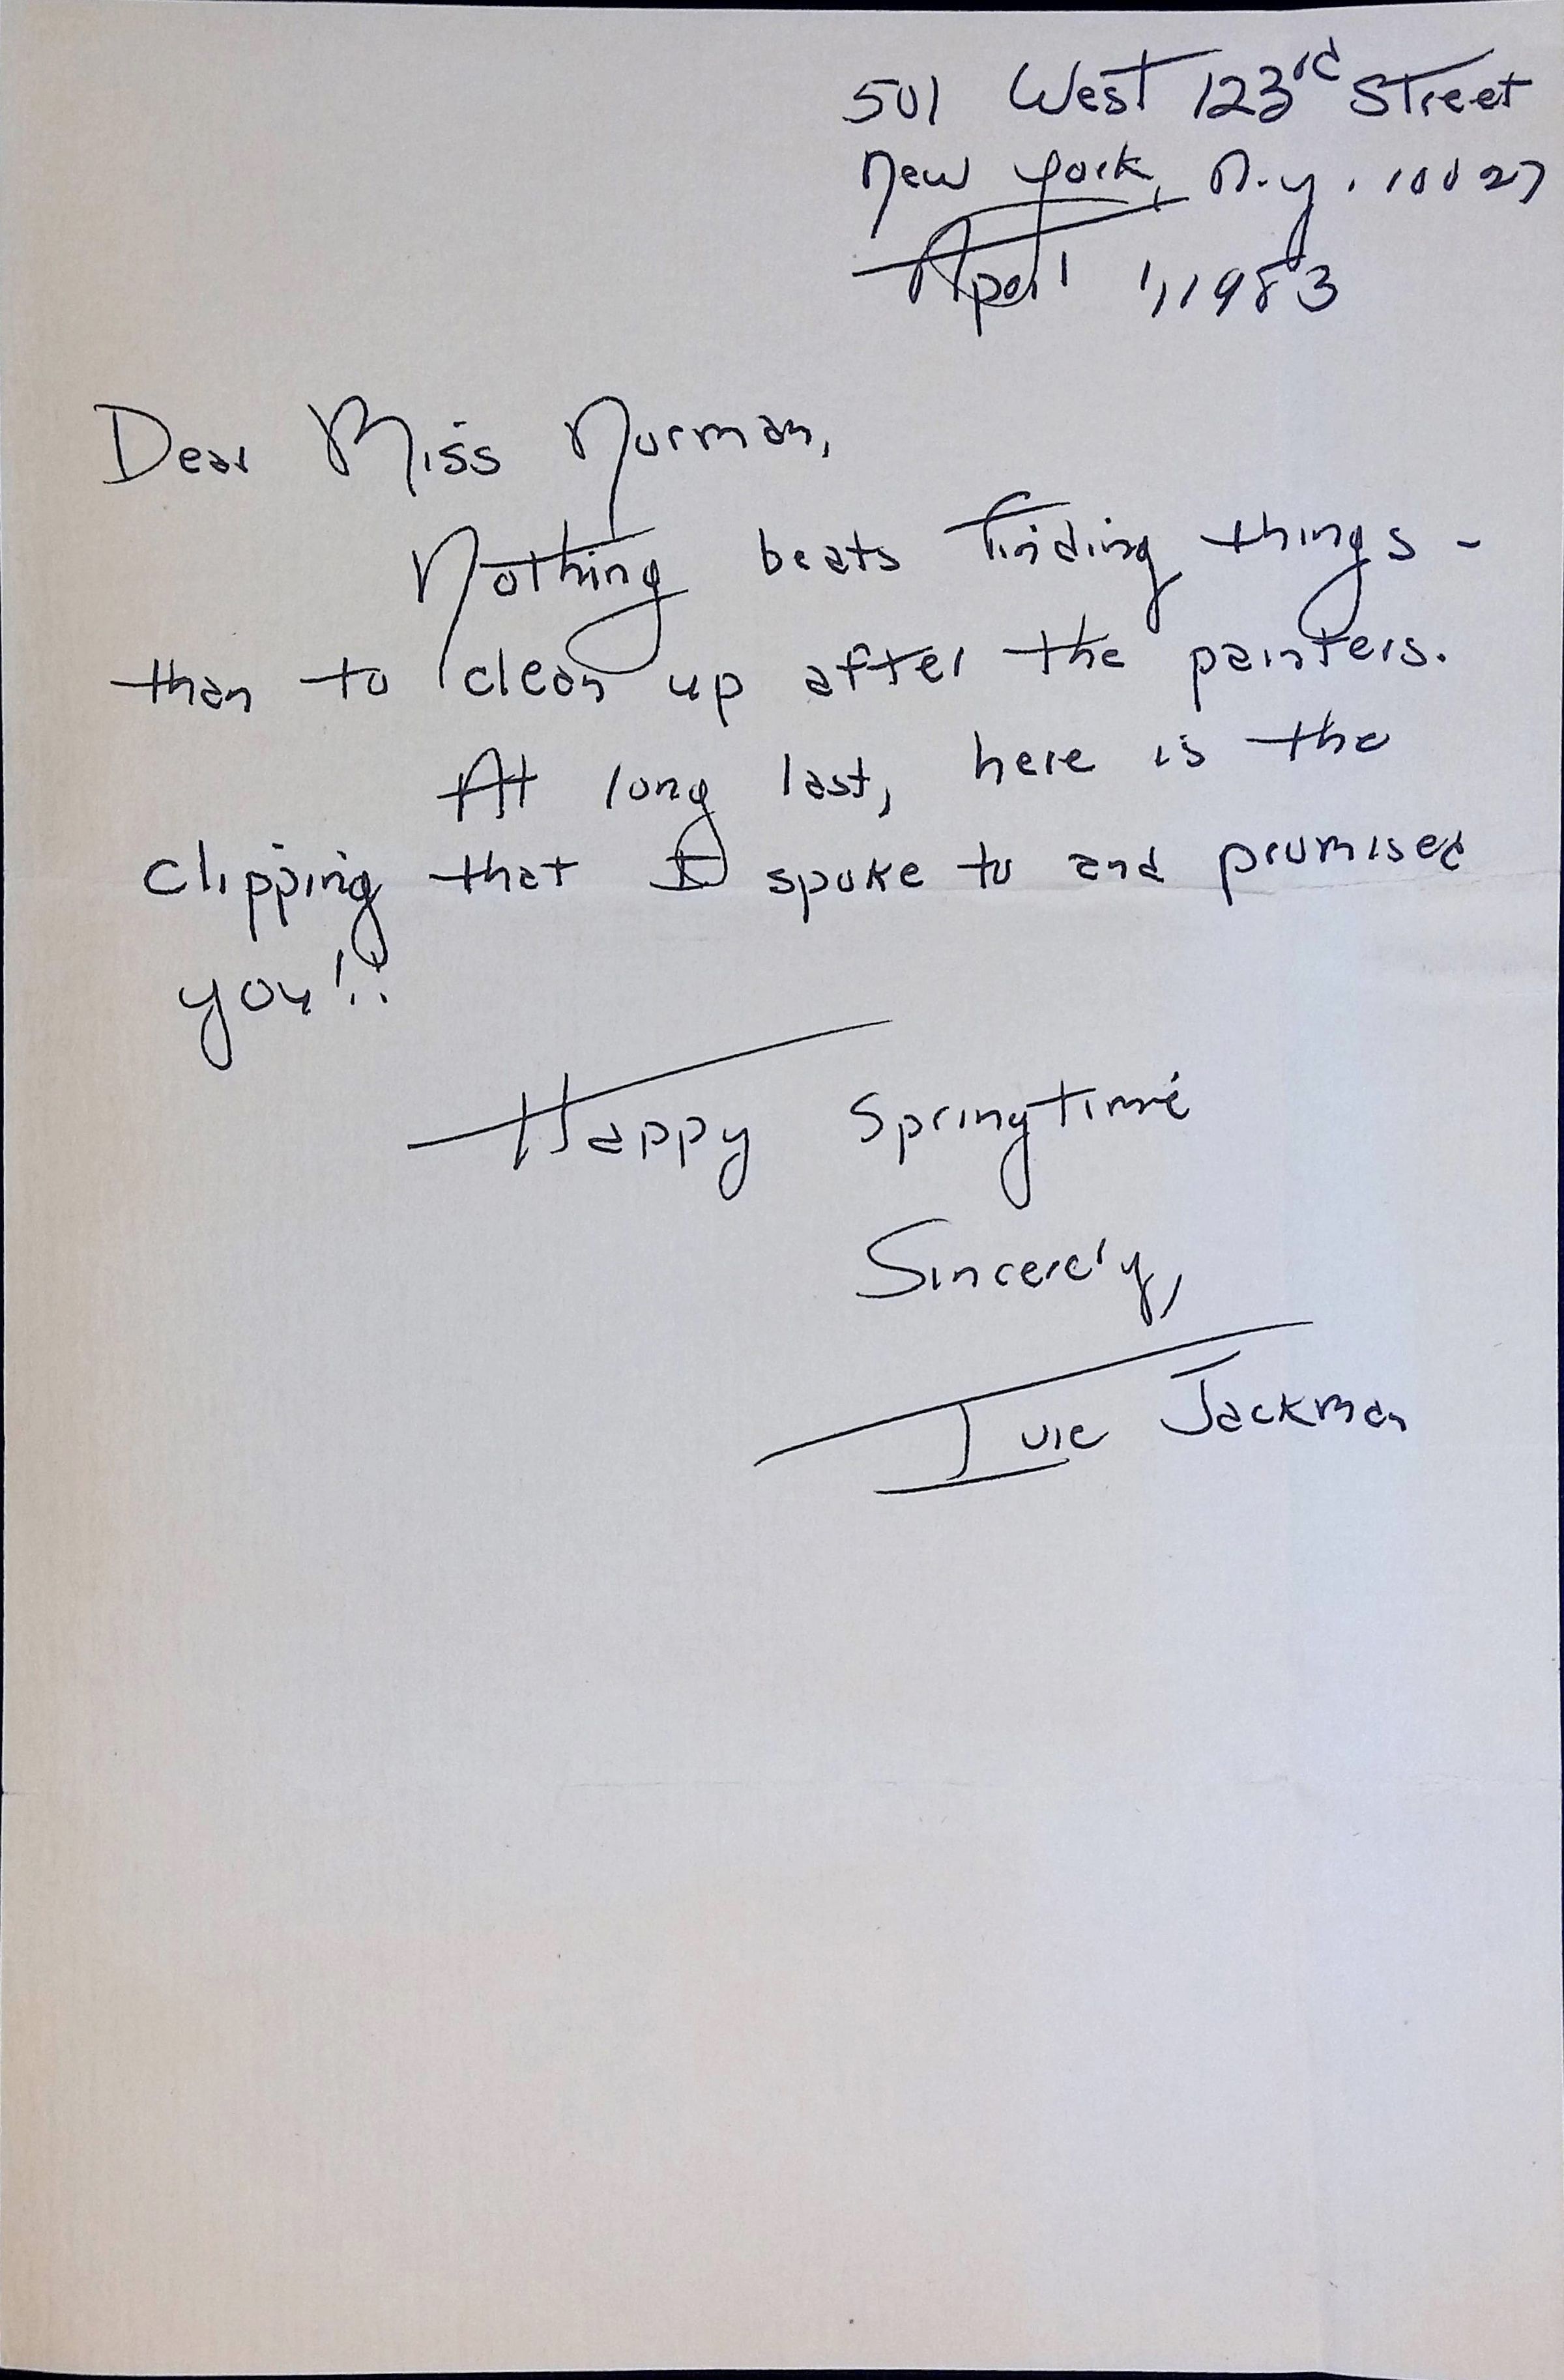 501 West 123rd Street
New York, N.Y. 10027
April 1, 1983
Dear Miss Norman,
Nothing beats finding things -
than to clean up after the painters.
At long last, here is the
clipping that I spoke to and promised
you!!
Happy Springtime
Sincerely,
Ivie Jackman